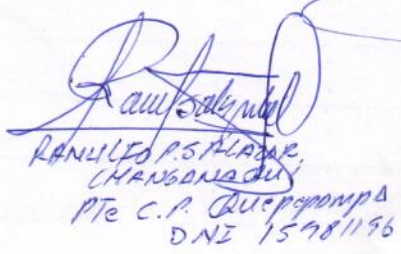 RANULFO P. SALAZAR,
CHANGANAQUI
PTe C.P. Quepepampa
DNI 15981196